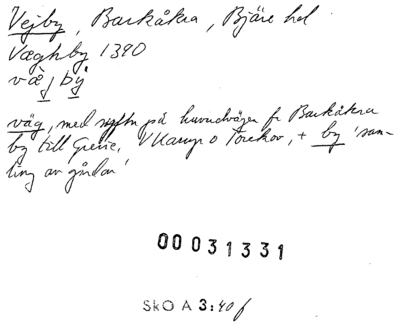 Vejby, Barkåkra, Bjäre hd
Væghby 1390
væ̀j bý
väg, med syftn på huvudvägen fr Barkåkra
by till Grevie, V Karup o Torekov, + by 'sam-
ling av gårdar'
00031331
SkO A 3:40f